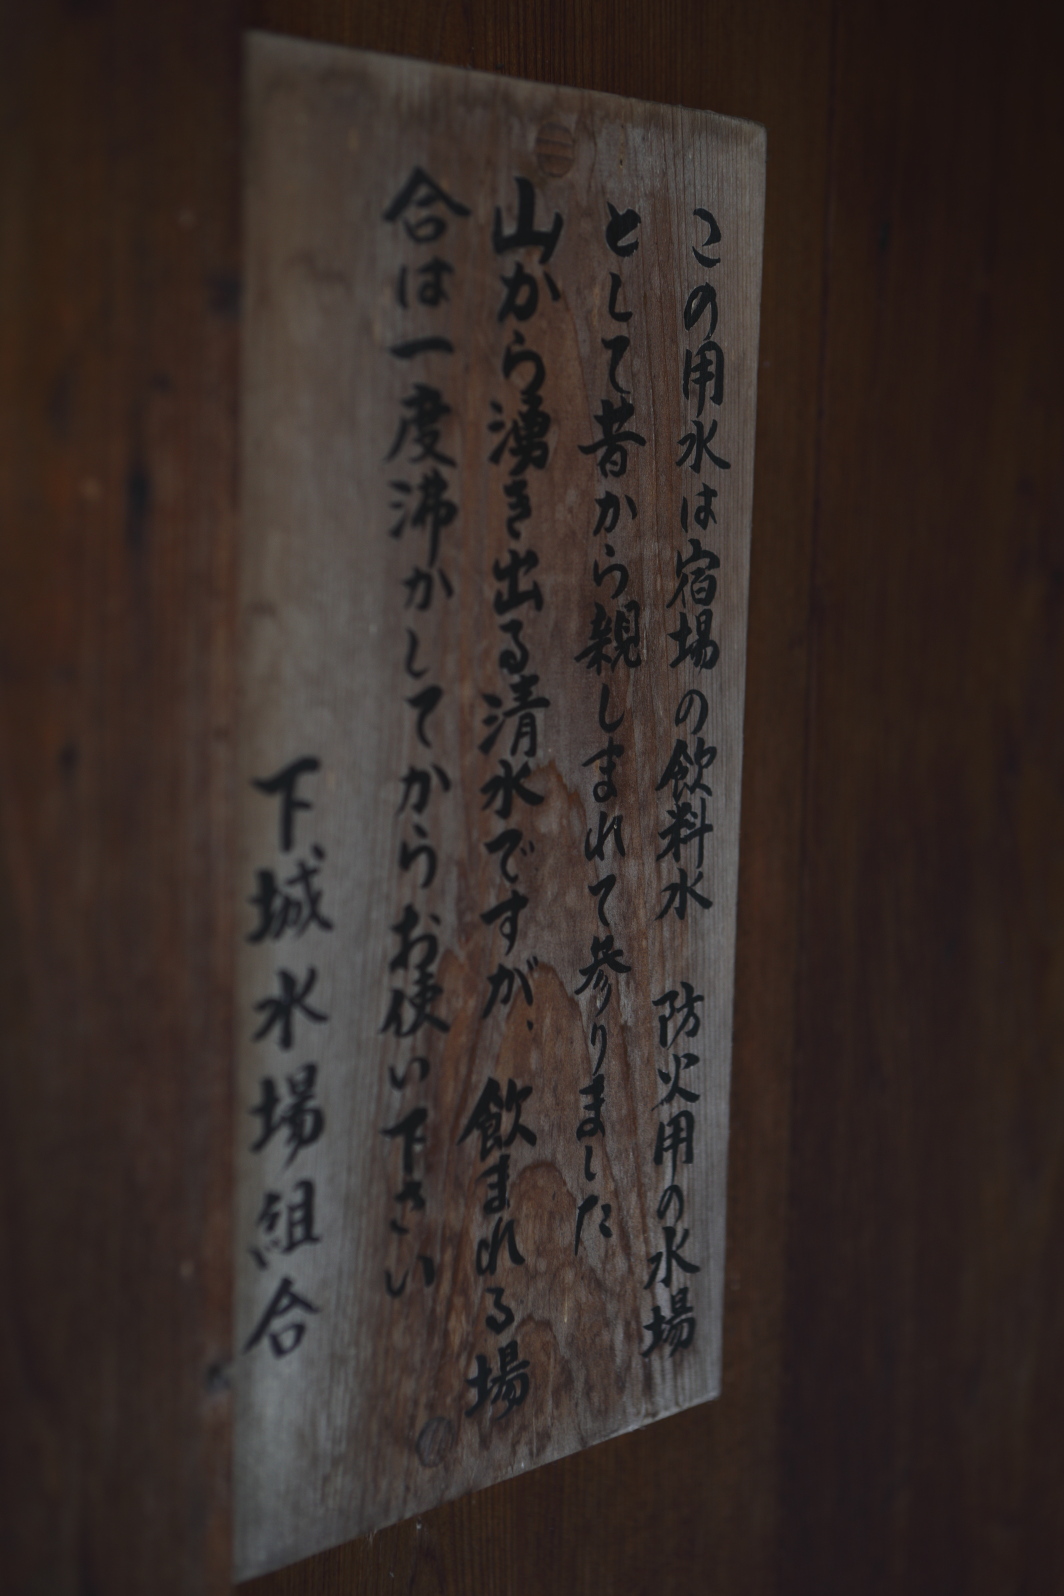 この用水は宿場の飲料水　防火用の水場
として昔から親しまれて参りました
山から湧き出る清水ですが、飲まれる場
合は一度沸かしてからお使い下さい
下城水場組合